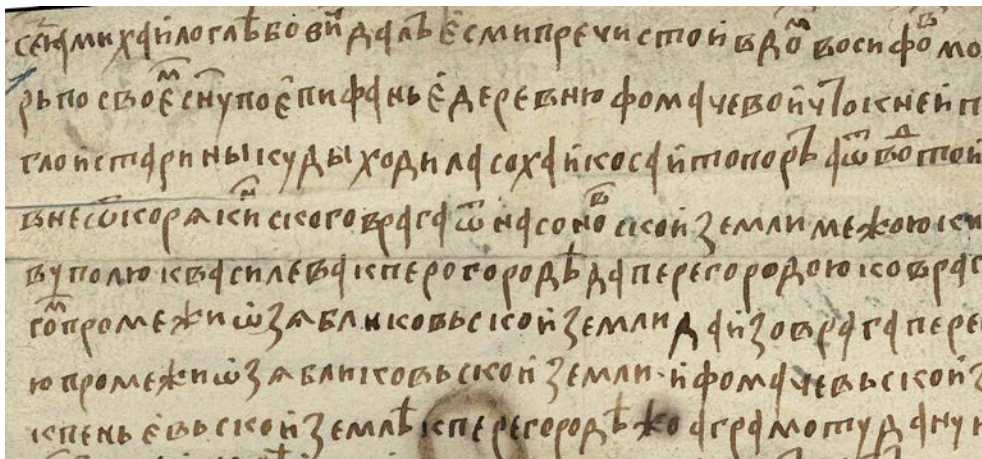 се ꙗ михаило глѣбови далъ єсми пречистои в до восифо мо
рь по своє сну по єпифанье деревню фомачевои что к неи п
гло и старины куды ходила соха и коса и топоръ а ѿ во тои
вне ѿ корякинского врага ѿ насоновскои земли межою к
в у полю к василева к перогородѣ да перегородою к овраг
гом промежи ѡ зябликовьскои земли да из оврага пере
ю промежи ѡ зябликовьскои земли и фомачевьскои з
к пеньєвьскои землѣ к перегородѣ ж а грамоту дану